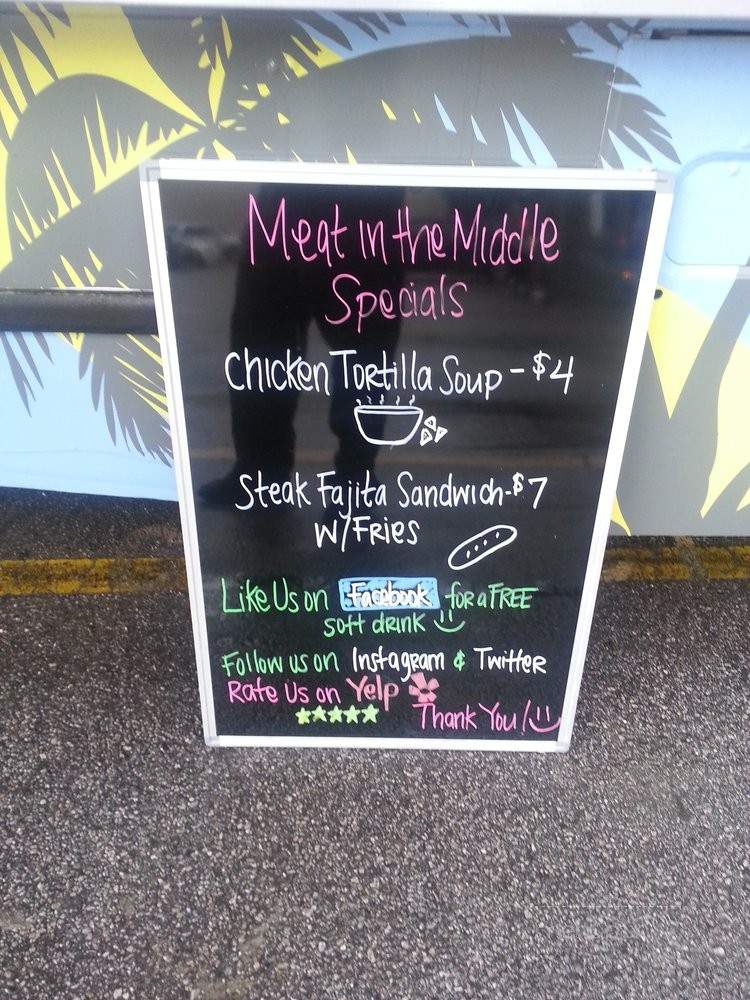 Meat in the Middle
Specials
Chicken Tortilla Soup - $4
Steak Fajita Sandwich - $7
W/Fries
Like Us on Facebook for a FREE
soft drink
Follow us on Instagram & Twitter
Rate Us on Yelp
Thank You!